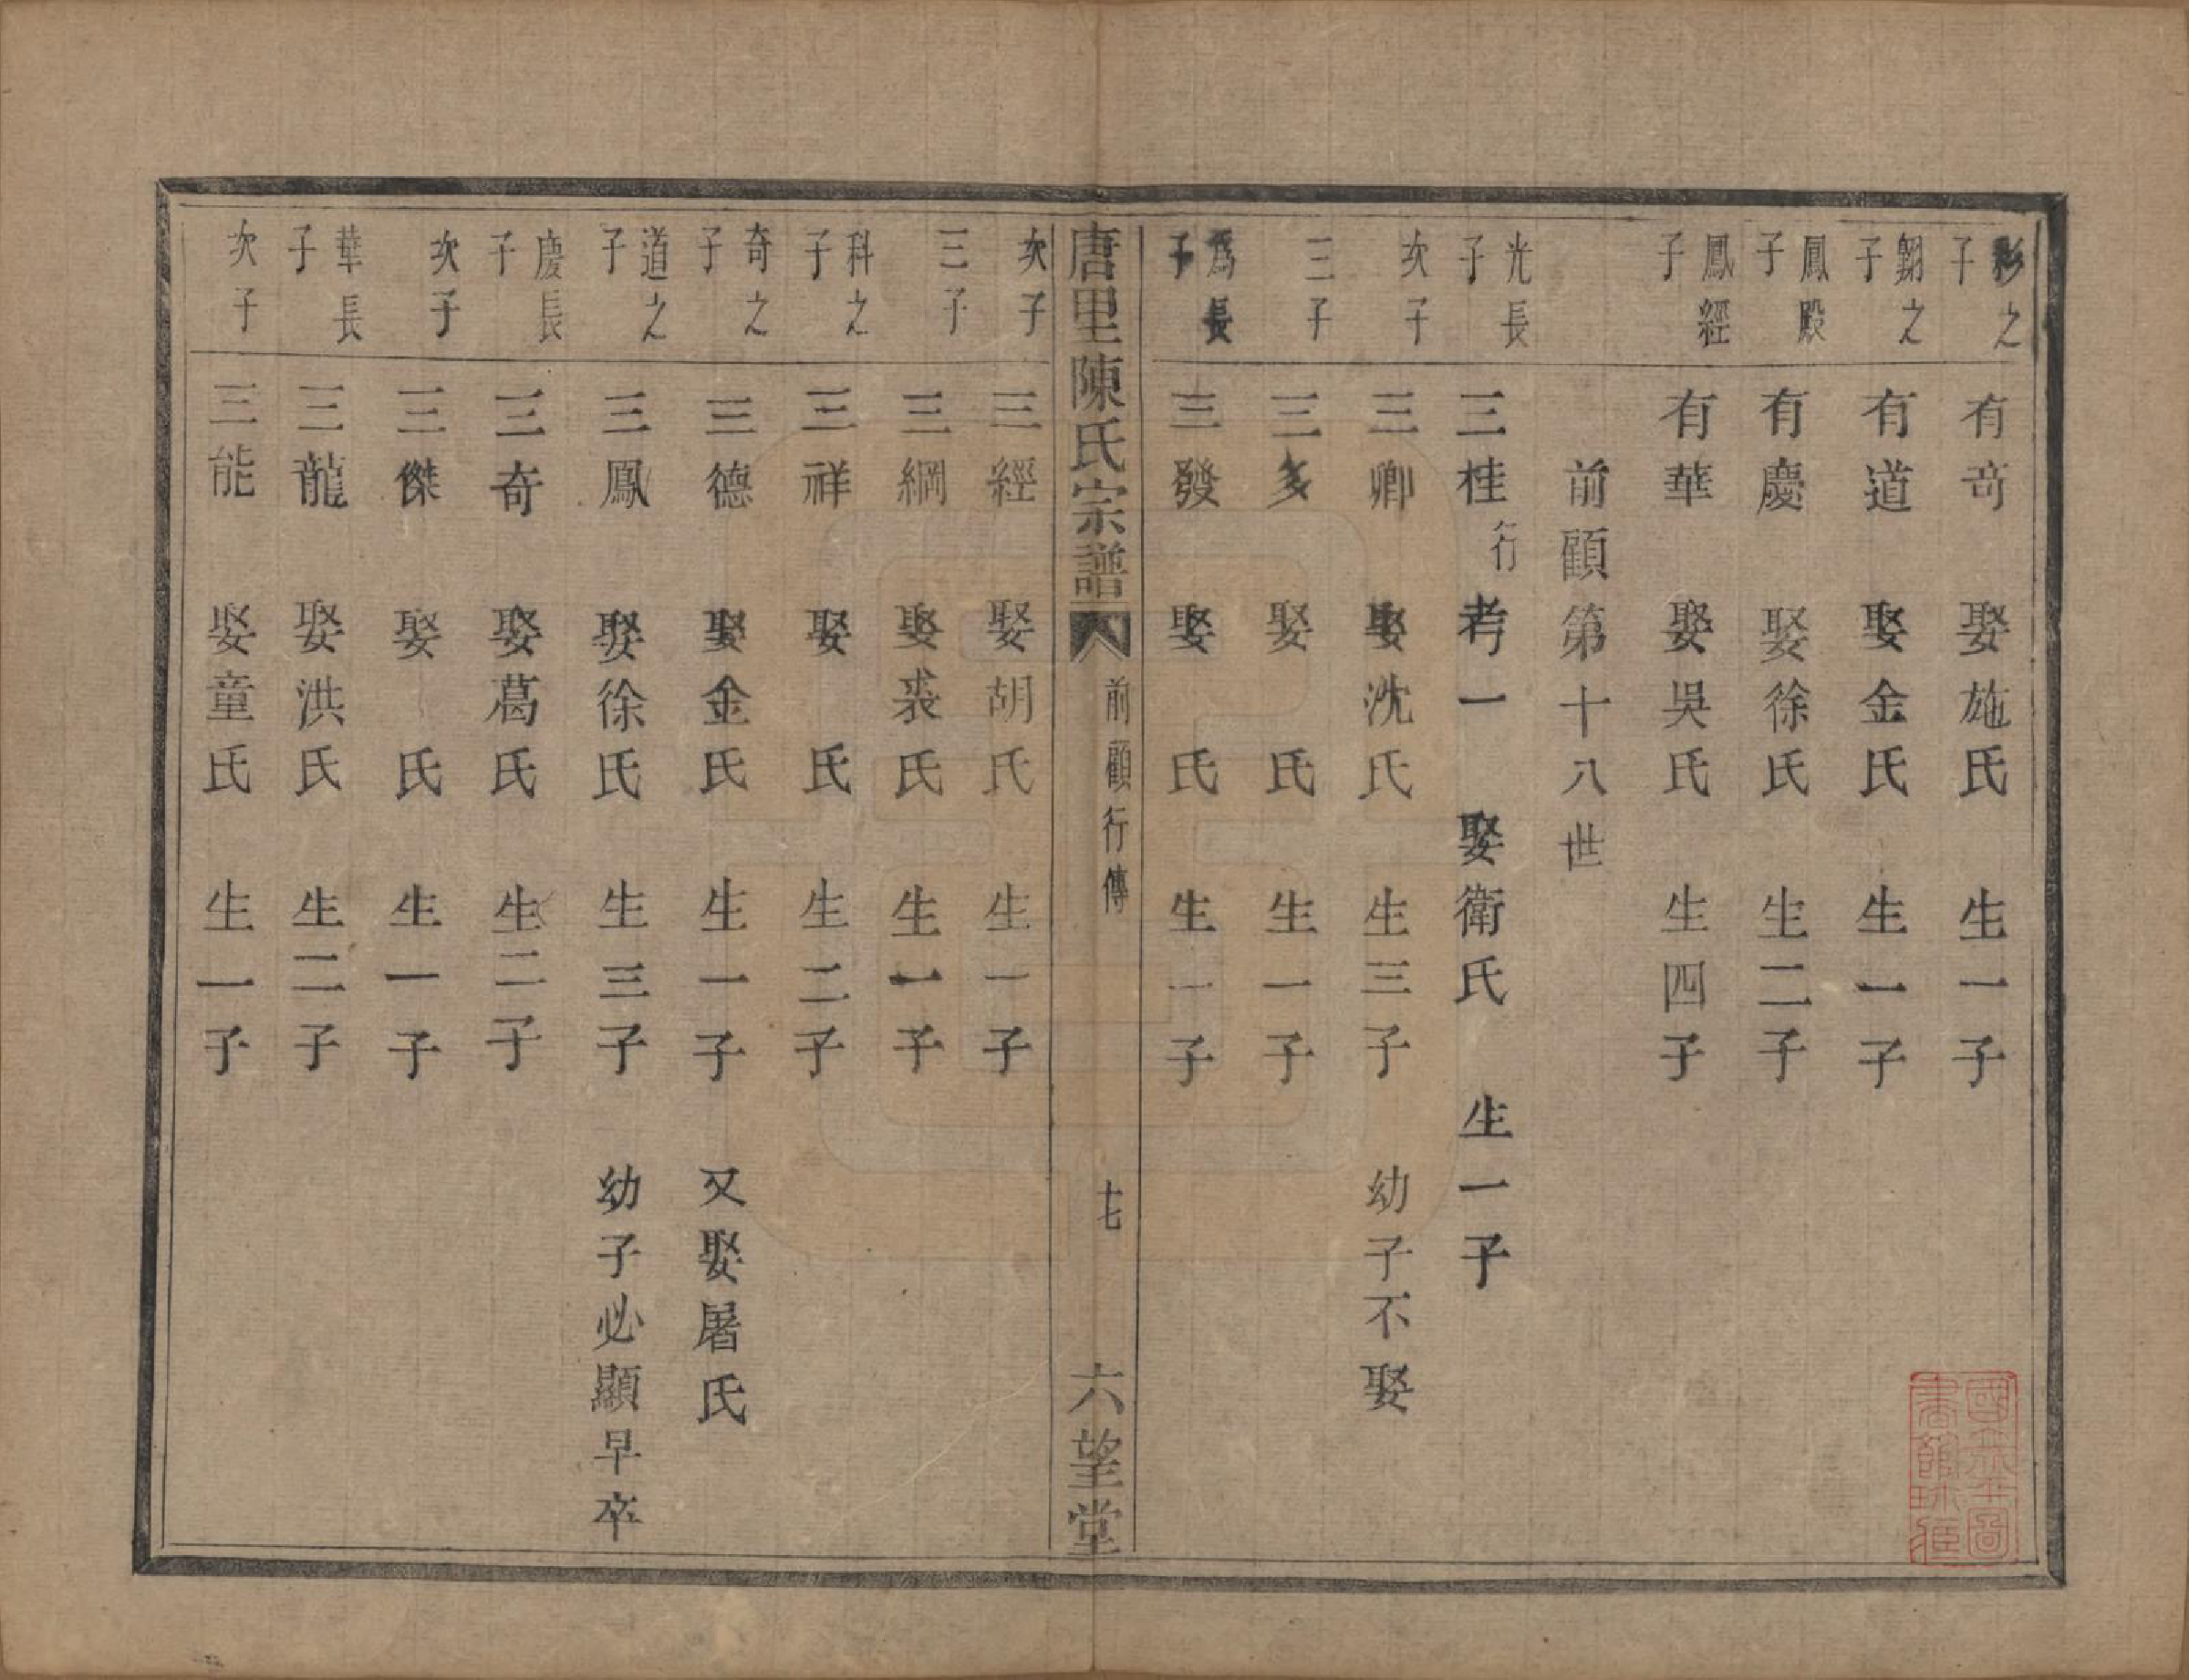 彩之子　有竒　娶施氏　生一子
翺之子　有道　娶金氏　生一子
鳳殿子　有慶　娶徐氏　生二子
鳳經子　有華　娶吳氏　生四子
前顧第十八世
光長子　三桂行考一　娶衛氏　生一子
次子　三卿　娶沈氏　生三子　幼子不娶
三子　三多　娶　氏　生一子
爲長子　三發　娶　氏　生一子
唐里陳氏宗譜　前顧行傳　十七　六望堂
次子　三經　娶胡氏　生一子
三子　三綱　娶裘氏　生一子
科之子　三祥　娶　氏　生二子
奇之子　三德　娶金氏　生一子　又娶屠氏
道之子　三鳳　娶徐氏　生三子　幼子必顯早卒
慶長子　三奇　娶葛氏　生二子
次子　三傑　娶　氏　生一子
華長子　三龍　娶洪氏　生二子
次子　三能　娶童氏　生一子
國立北平圖書館珍藏